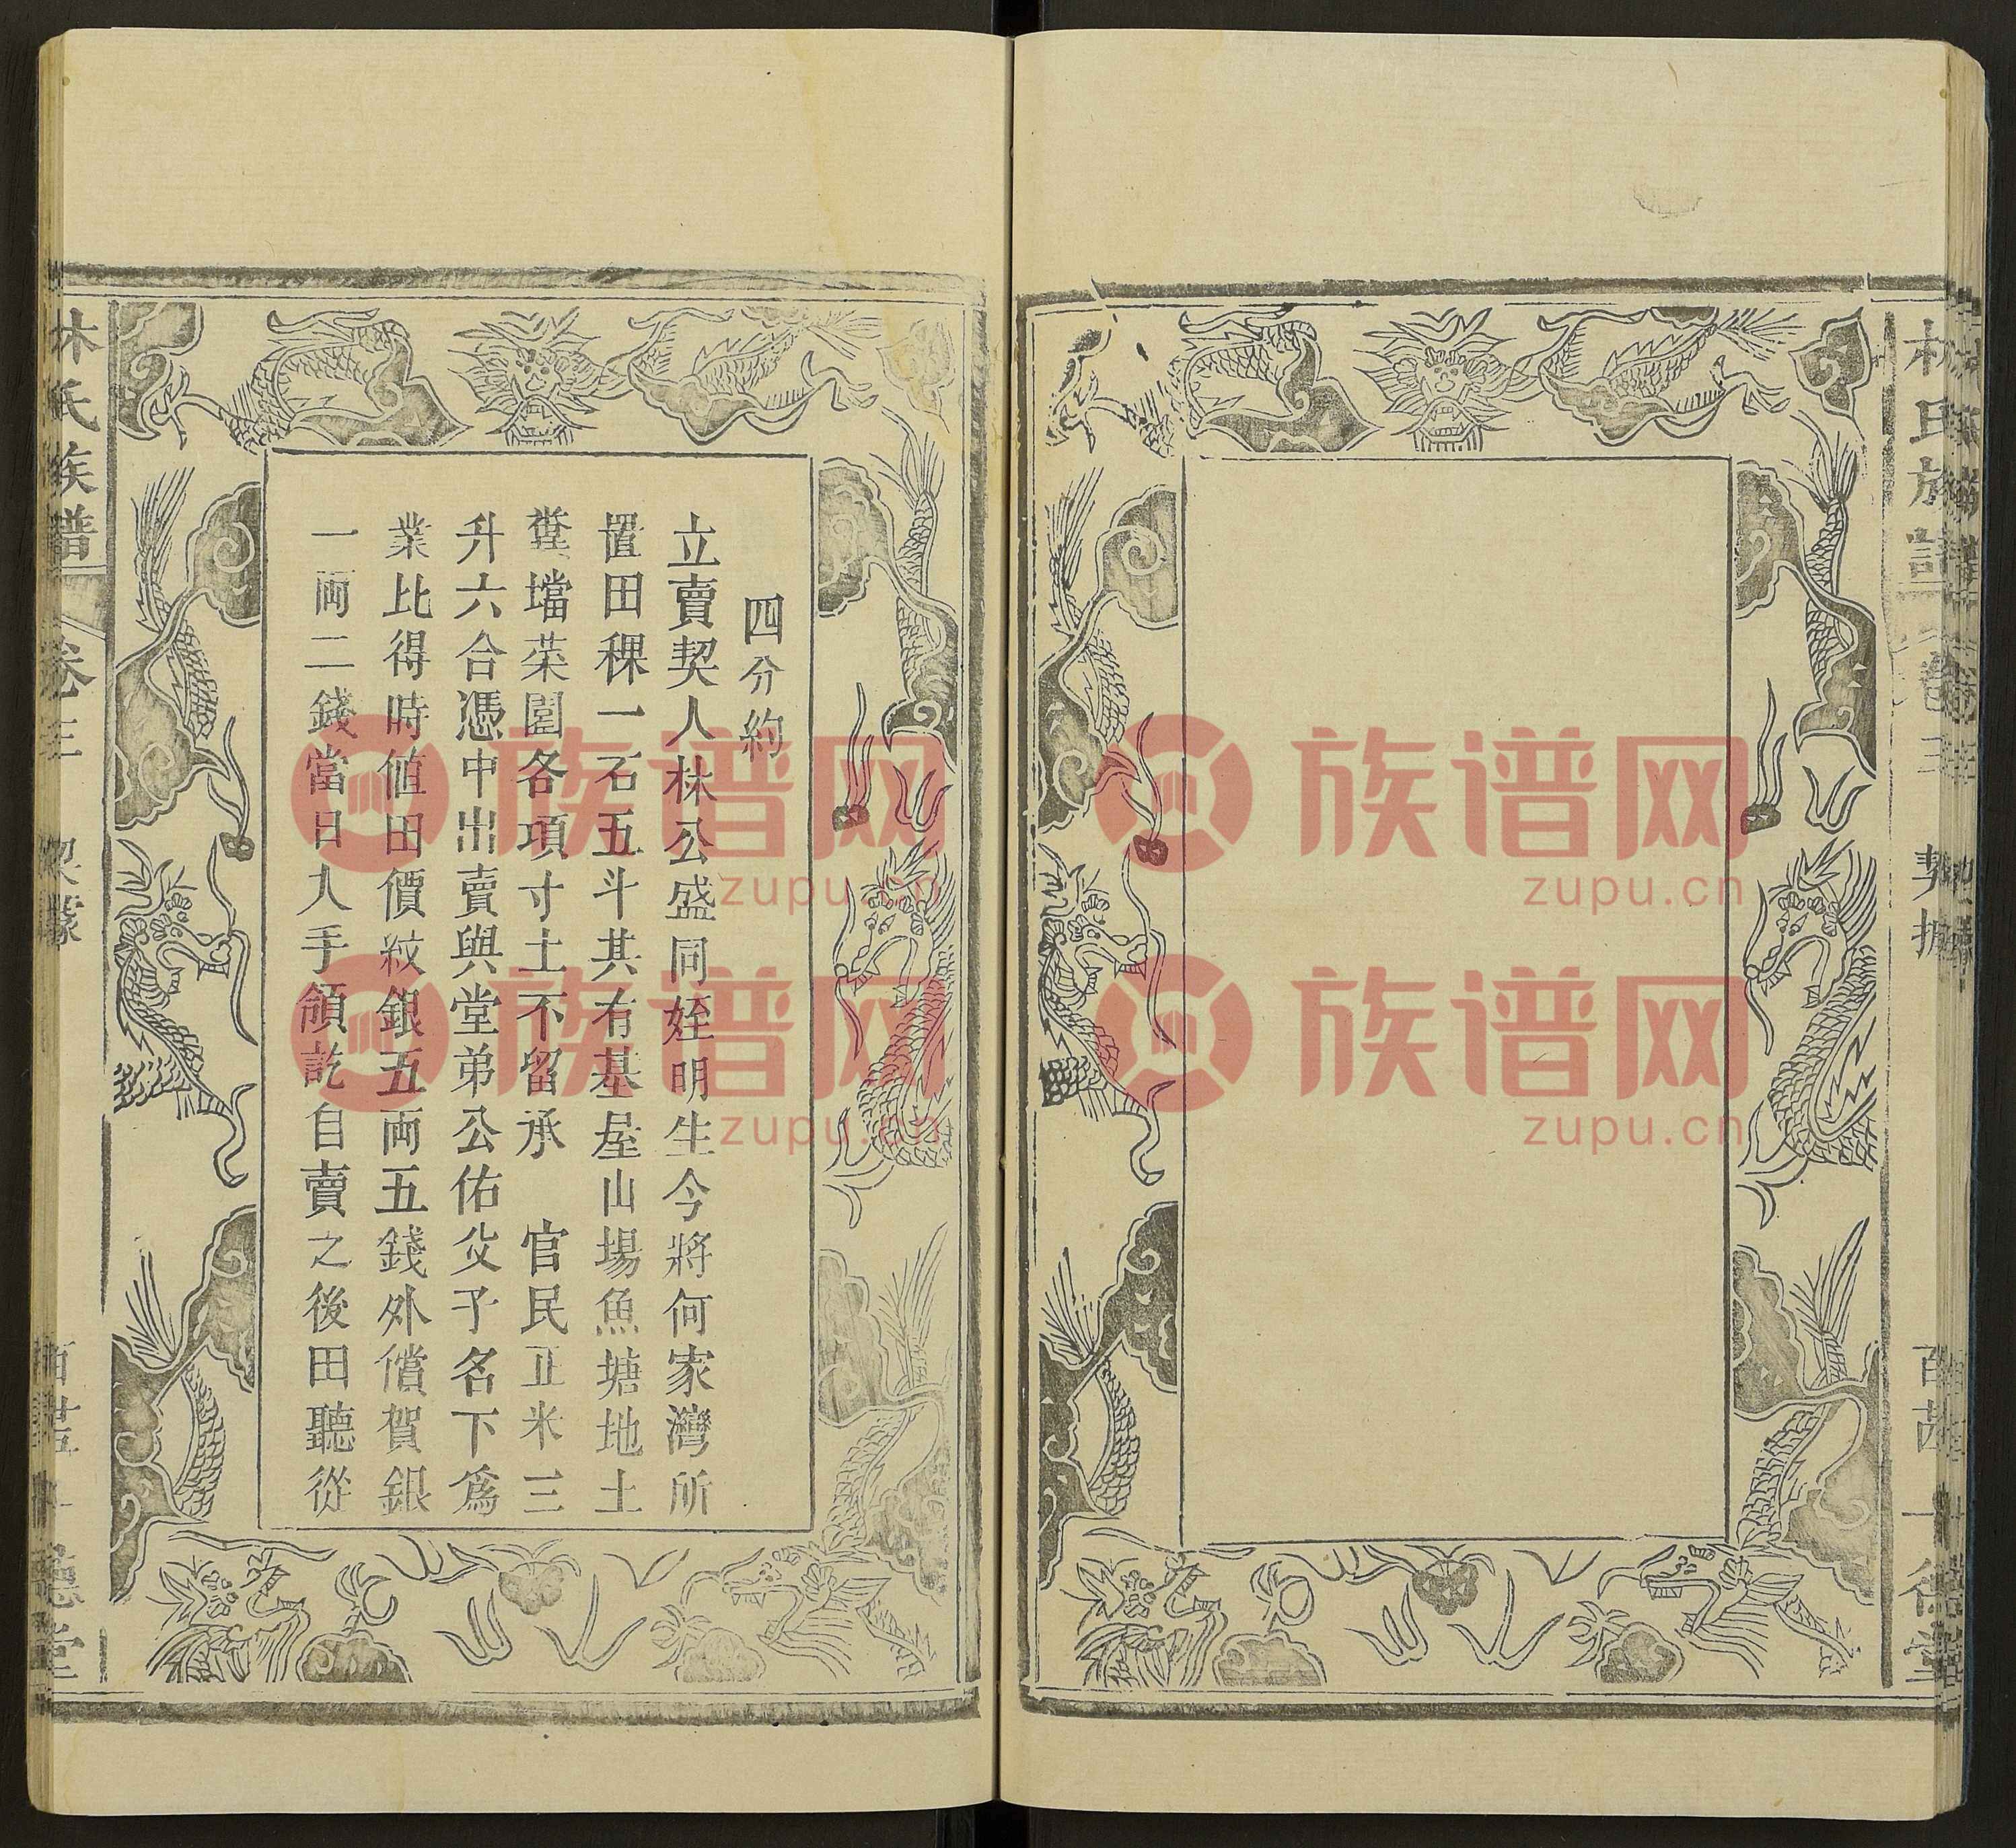 四分約
立賣契人林公盛同姪明生今將何家灣所
置田稞一石五斗其有基屋山場魚塘地土
糞壋菜園各項寸土不留承　官民正米三
升六合憑中出賣與堂弟公佑父子名下爲
業比得時値田價紋銀五両五錢外償賀銀
一両二錢當日入手領訖自賣之後田聽從
林氏族譜
卷三
契據
百世
德堂
林氏族譜
卷三
契據
族谱网
zupu.cn
族谱网
zupu.cn
族谱网
zupu.cn
族谱网
zupu.cn